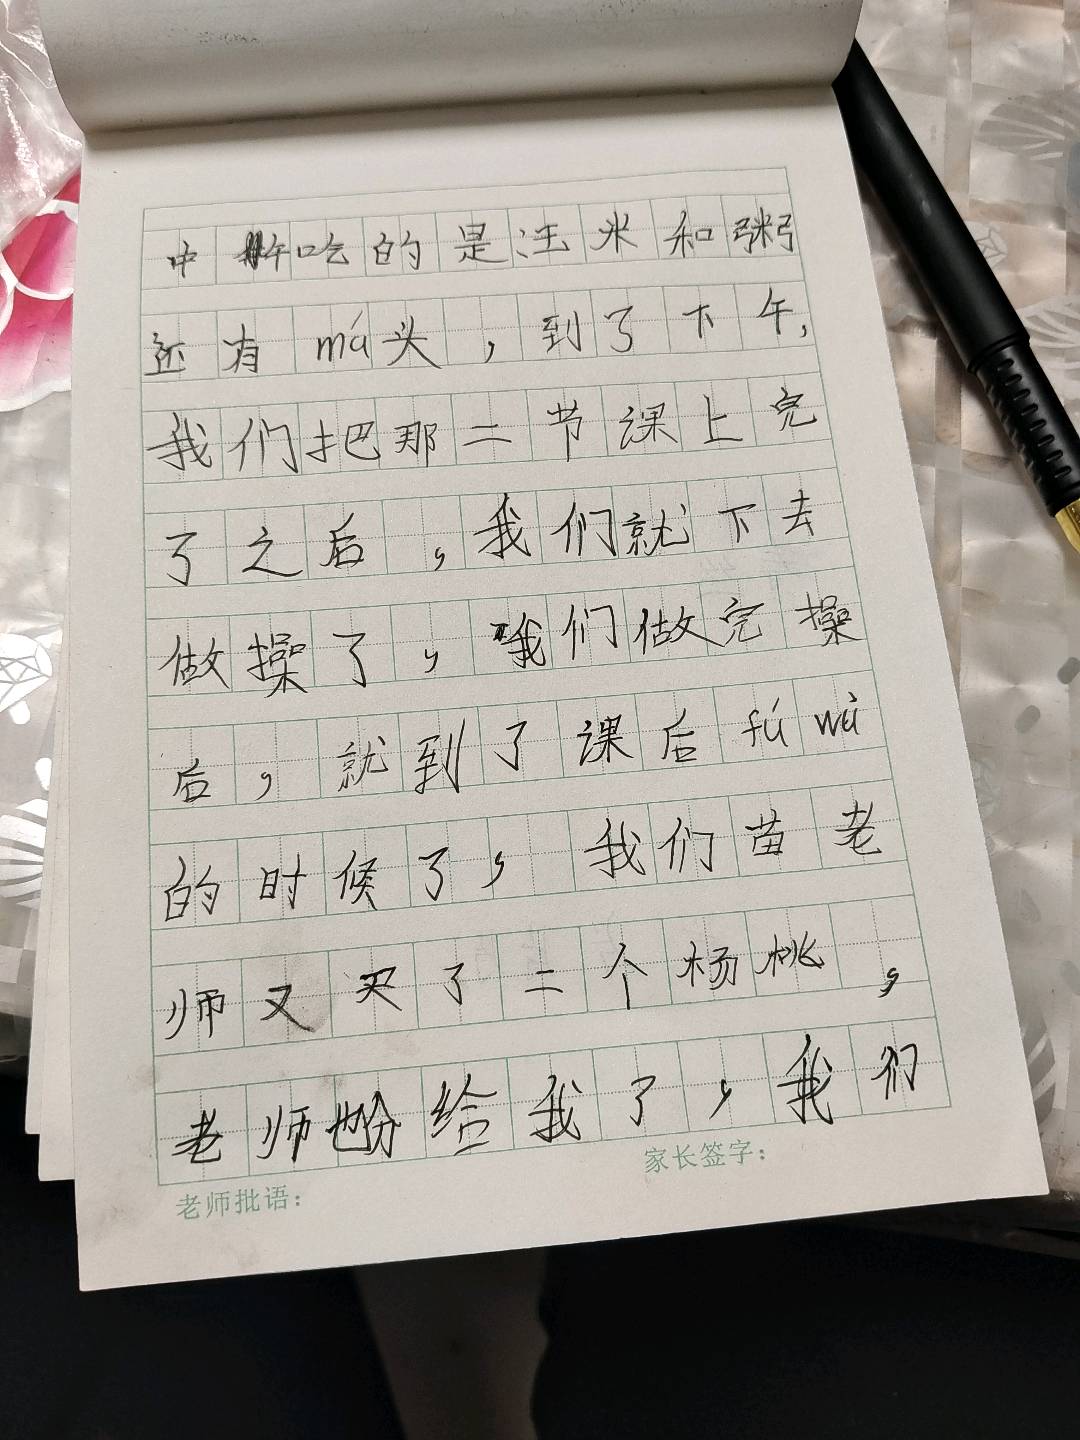 中午吃的是汪米和粥
还有má头，到了下午，
我们把那二节课上完
了之后，我们就下去
做操了，我们做完操
后，就到了课后fúwù
的时候了，我们苗老
师又买了二个杨桃，
老师也分给我了，我们
家长签字：
老师批语：